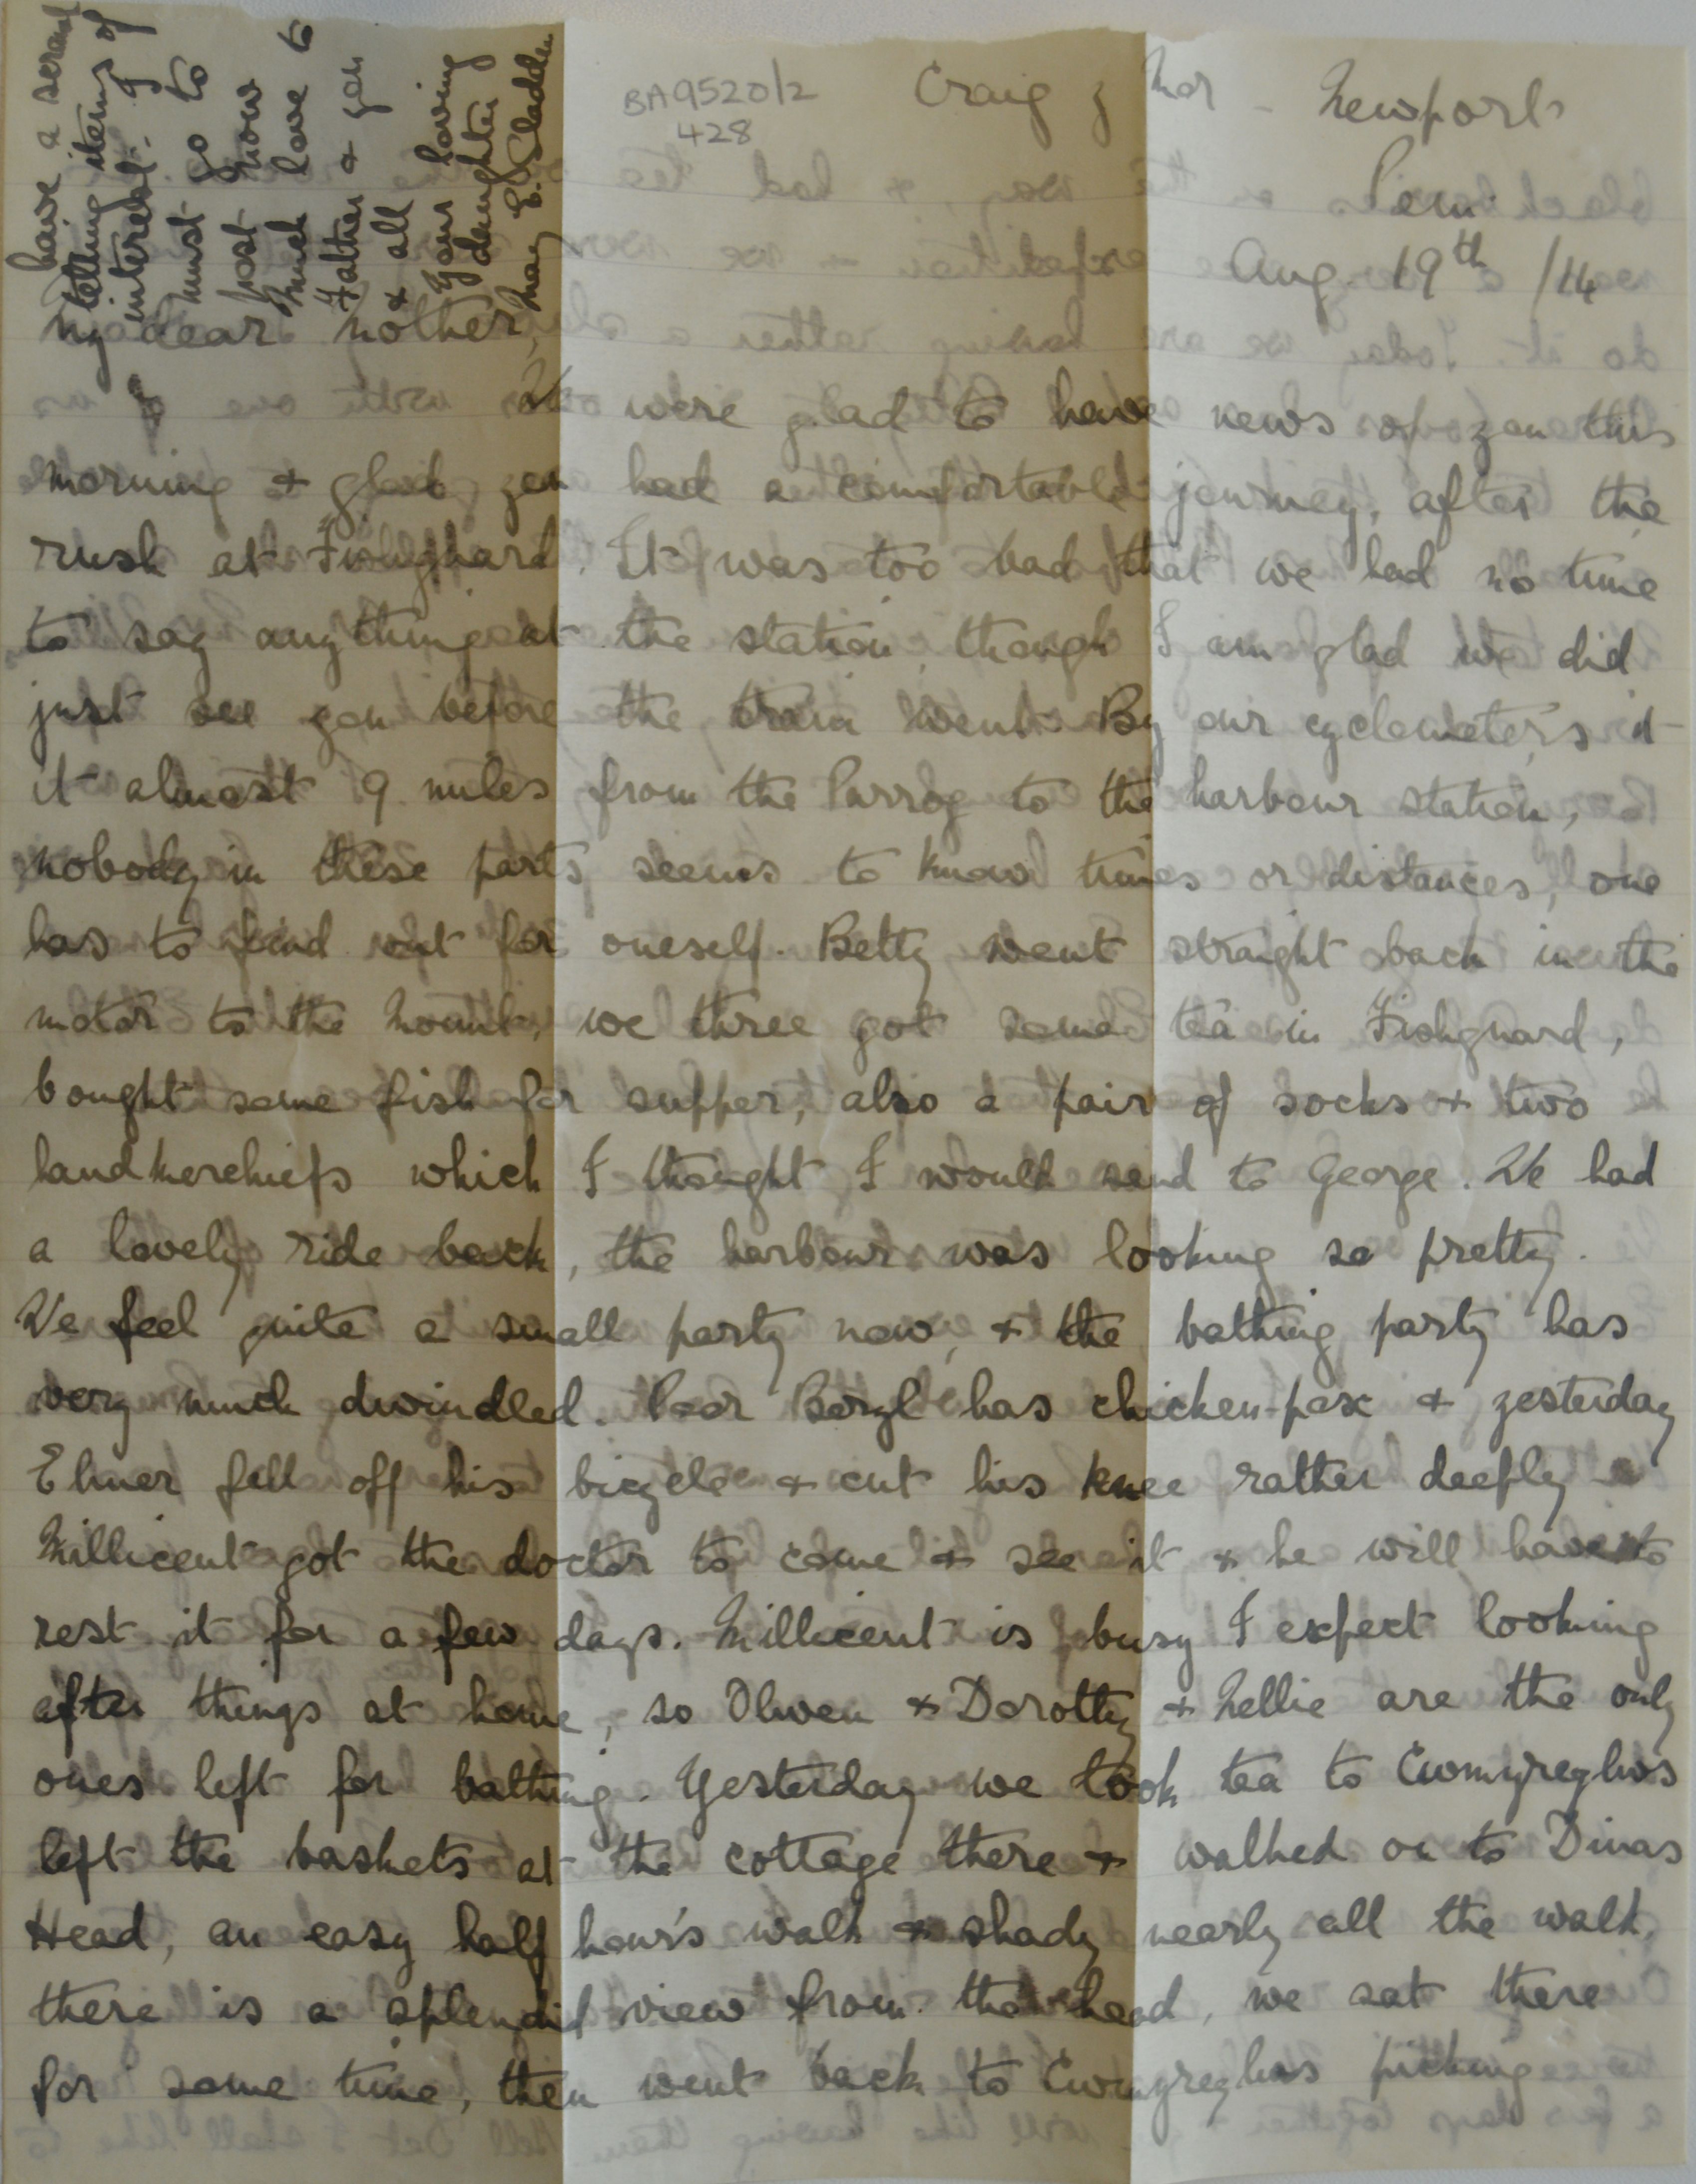 BA9520/2
428
Craig y Mor - Newport
Pem.
Aug. 19th /14
My dear Mother,
We were glad to have news of you this
morning & glad you had a comfortable journey, after the
rush at Fishguard. It was too bad that we had no time
to say anything at the station, though I am glad we did
just see you before the train went. By our cyclometers it
it almost 9 miles from the Parrog to the harbour station,
nobody in these parts seems to know times or distances, one
has to find out for oneself. Betty went straight back in the
motor to the Mount, we three got some tea in Fishguard,
bought some fish for supper, also a pair of socks & two
handkerchiefs which I thought I would send to George. We had
a lovely ride back, the harbour was looking so pretty.
We feel quite a small party now, & the bathing party has
very much dwindled. Poor Beryl has chicken-pox & yesterday
Elmer fell off his bicycle & cut his knee rather deeply
Millicent got the doctor to come & see it & he will have to
rest it for a few days. Millicent is busy I expect looking
after things at home, so Olwen & Dorothy & Nellie are the only
ones left for bathing. Yesterday we took tea to Cwmyreglws
left the baskets at the cottage there & walked on to Dinas
Head, an easy half hour's walk & shady nearly all the walk,
there is a splendid view from the head, we sat there
for some time, then went back to Cwmyreglws picking
have a servant
telling items of
interest. I
must go to
post now
Much love to
Father & you
& all
Your loving
daughter
May E. Sladden